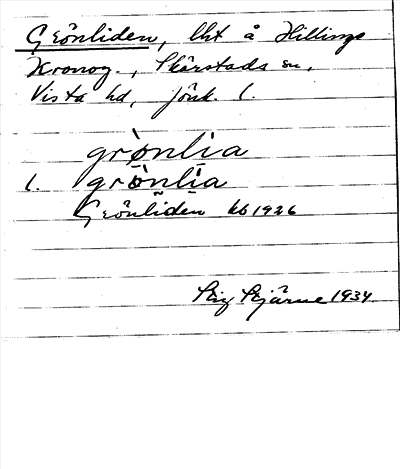 Grönliden, lht å Hillinge
Kronog., Skärstads sn,
Vista hd, Jönk. l.
grònlia
l. grö̀nlìa
Grönliden kb 1926
Stig Bjärne 1934